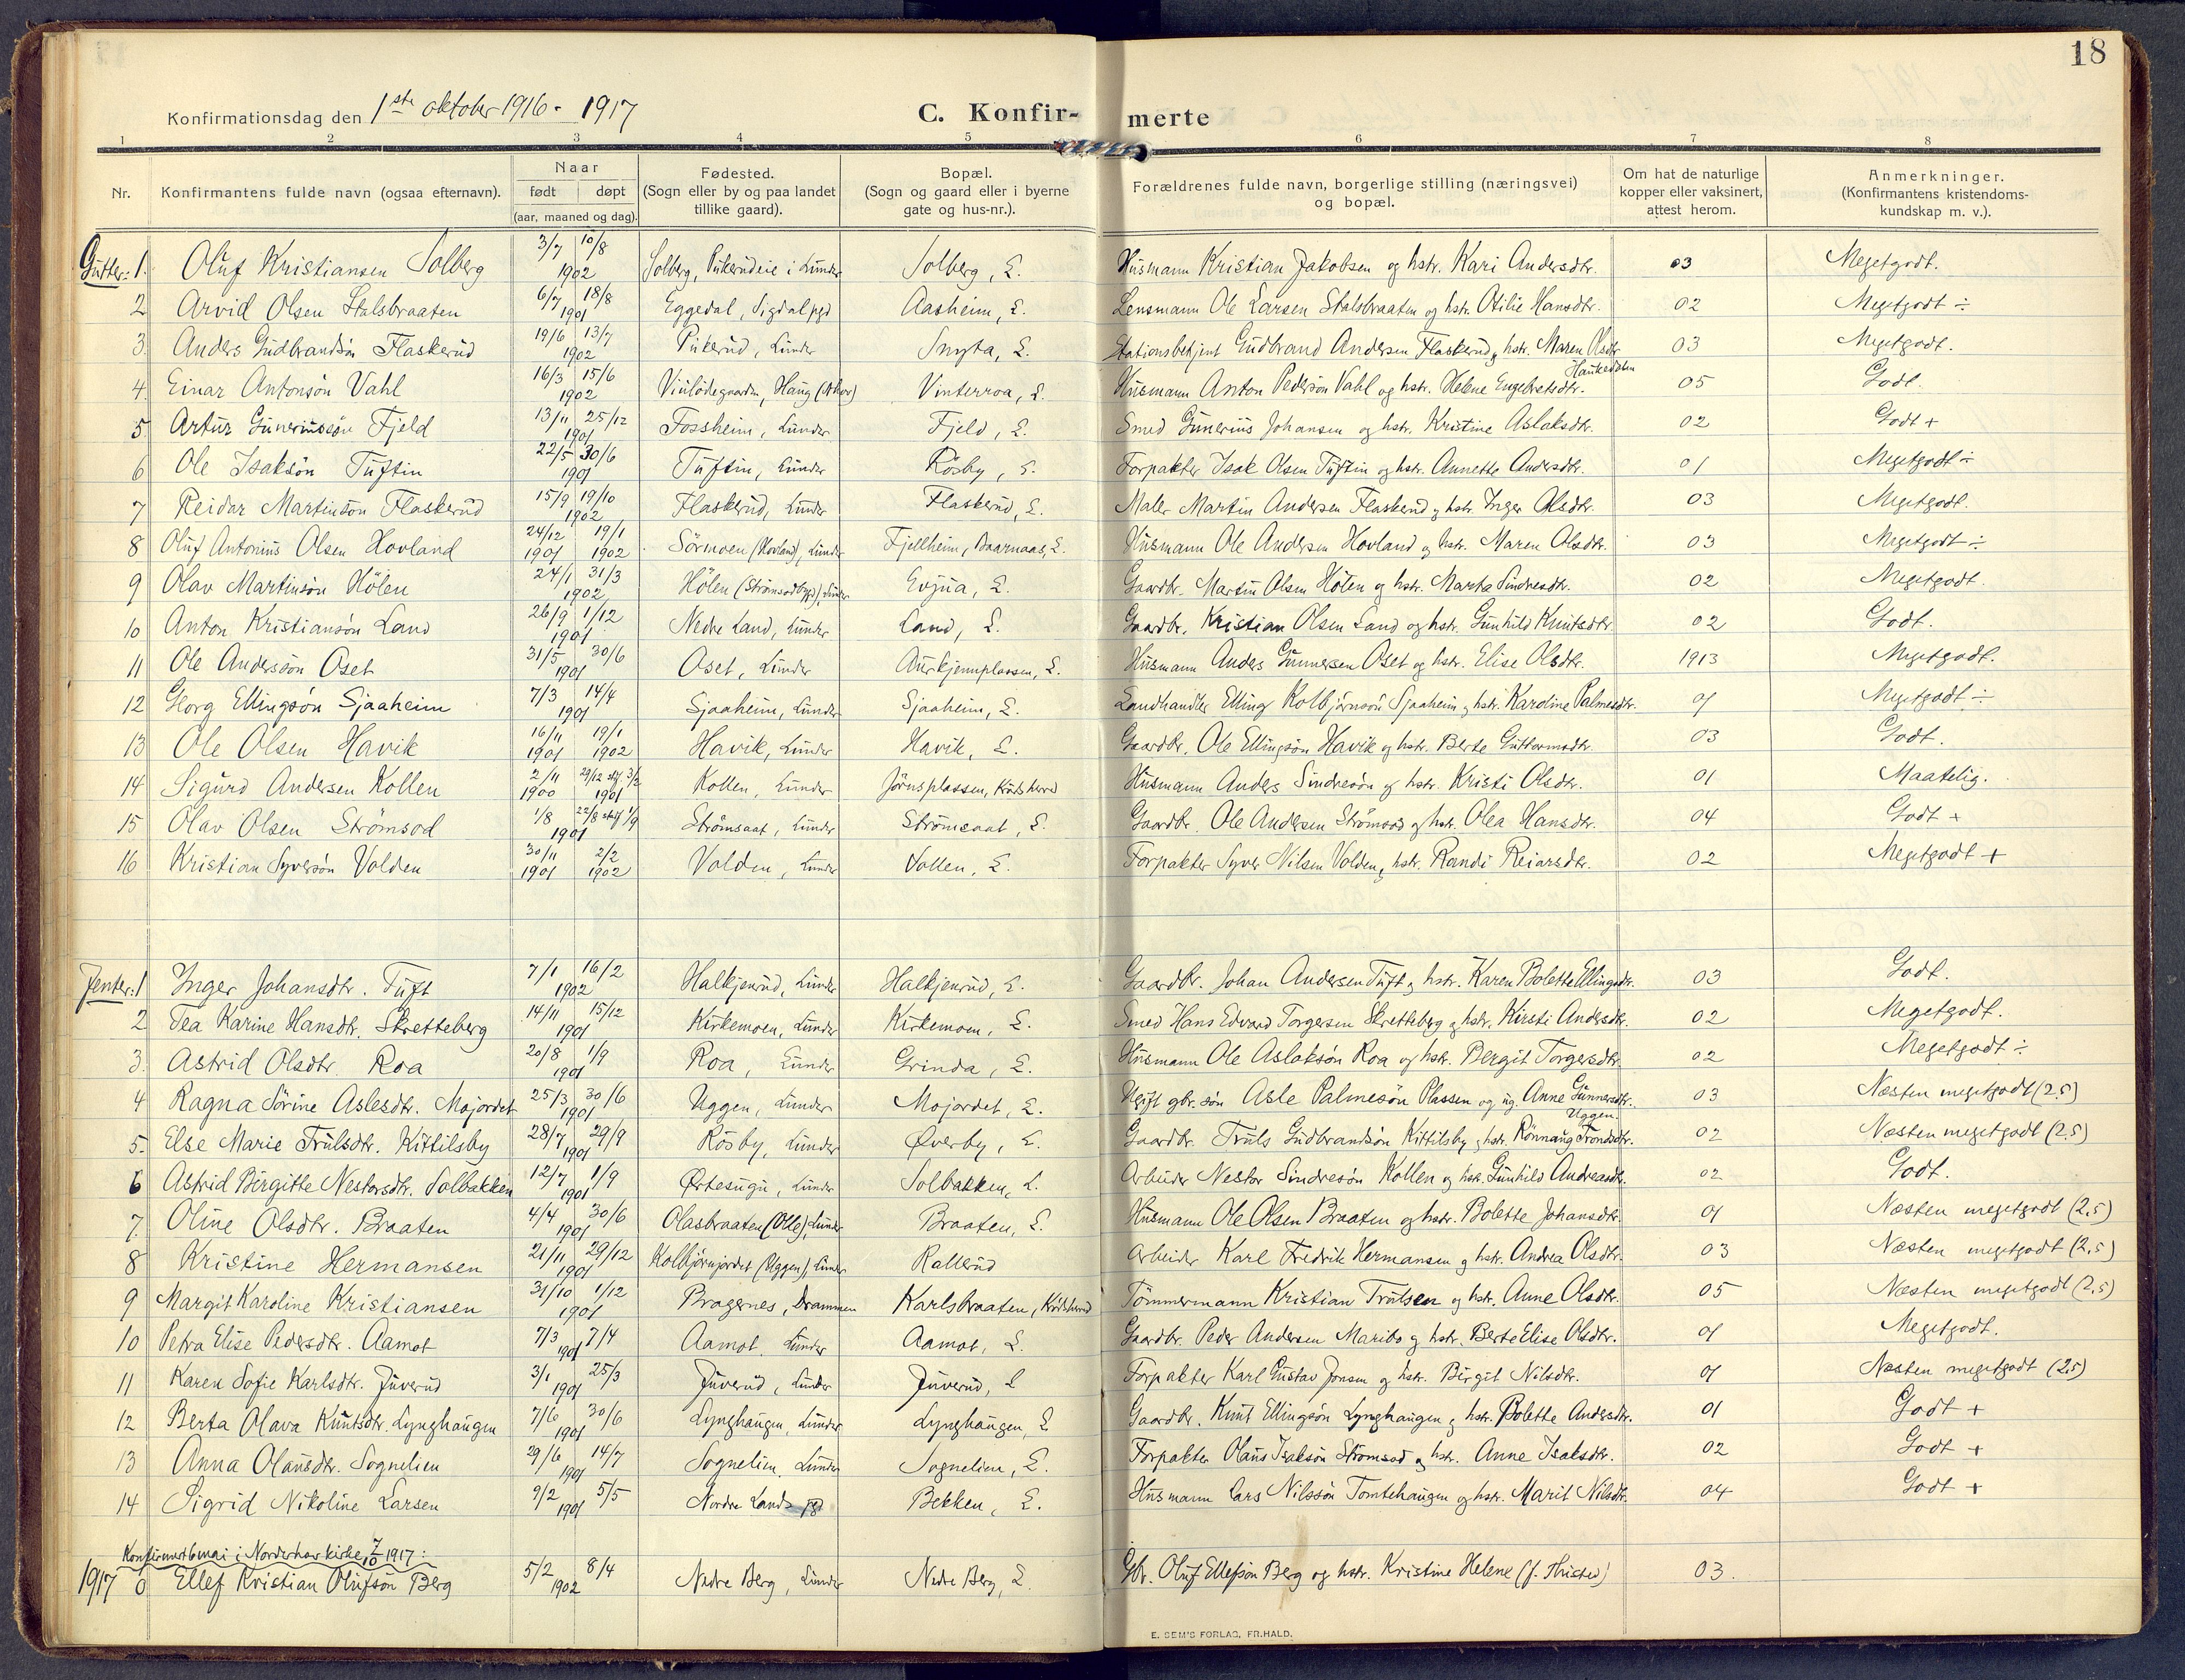 18
Konfirmationsdag den 1ste oktober 1916 - 1917
C. Konfir- merte
1 2 3 4 5 6 7 8
Nr. Konfirmantens fulde navn (ogsaa efternavn). Naar født døpt (aar, maaned og dag). Fødested. (Sogn eller by og paa landet tillike gaard). Bopæl. (Sogn og gaard eller i byerne gate og hus-nr.). Forældrenes fulde navn, borgerlige stilling (næringsvei) og bopæl. Om hat de naturlige kopper eller vaksinert, attest herom. Anmerkninger. (Konfirmantens kristendoms- kundskap m. v.).
Gutter: 1. Oluf Kristiansen Solberg 3/7 10/8 1902 Solberg, Pukerudeie i Lunder Solberg, L. Husmann Kristian Jakobsen og hstr. Kari Andersdtr. 03 Megetgodt.
2 Arvid Olsen Stalsbraaten 6/7 18/8 1901 Eggedal, Sigdal pgd Aasheim, L. Lensmann Ole Larsen Stalsbraaten og hstr. Otilie Hansdtr. 02 Megetgodt ÷
3. Anders Gudbrandsön Flaskerud 19/6 13/7 1902 Pukerud, Lunder Snyta, L. Stationsbetjent Gudbrand Andersen Flaskerud og hstr. Maren Olsdtr. 03 Megetgodt.
4. Einar Antonsön Vahl 16/3 15/6 1902 Haug Vinterroa, L. Husmann Anton Pedersön Vahl og hstr. Helene Engebretsdtr. Haukedalen 05 Godt.
5 Artur Guneriussön Fjeld 13/11 25/12 1901 Fossheim, Lunder Fjeld, L. Smed Gunerius Johansen og hstr. Kristine Aslaksdtr. 02 Godt +
6 Ole Isaksön Tuftin 22/5 30/6 1901 Tuftin, Lunder Rösby, L. Forpakter Isak Olsen Tuftin og hstr. Annette Andersdtr. 01 Megetgodt ÷
7 Reidar Martinsön Flaskerud 15/9 19/10 1902 Flaskerud, Lunder Flaskerud, L. Maler Martin Andersen Flaskerud og hstr. Inger Olsdtr. 03 Megetgodt.
8 Oluf Antonius Olsen Hovland 24/12 1901 19/1 1902 Sörmoen (Hovland), Lunder Fjellheim, Baarnaas, L. Husmann Ole Andersen Hovland og hstr. Maren Olsdtr. 03 Megetgodt ÷
9 Olav Martinsön Hölen 24/1 31/3 1902 Hölen (Strömsodbygd), Lunder Evjua, L. Gaardbr. Martin Olsen Hölen og hstr. Marta Sindresdtr. 02 Megetgodt.
10 Anton Kristiansön Land 26/9 1/12 1901 Nedre Land, Lunder Land, L. Gaardbr. Kristian Olsen Land og hstr. Gunhild Knutsdtr. 02 Godt.
11 Ole Andersön Oset 31/5 30/6 1901 Oset, Lunder Aurkjennplassen, L. Husmann Anders Gunnersen Oset og hstr. Elise Olsdtr. 1913 Megetgodt.
12 Georg Ellingsön Sjaaheim 7/3 14/4 1901 Sjaaheim, Lunder Sjaaheim, L. Landhandler Elling Kolbjörnsön Sjaaheim og hstr. Karoline Palmesdtr. 01 Megetgodt ÷
13 Ole Olsen Havik 16/11 1901 19/1 1902 Havik, Lunder Havik, L. Gaardbr. Ole Ellingsön Havik og hstr. Berte Guttormsdtr. 03 Godt.
14 Sigurd Andersen Kollen 2/11 1900 29/12 stf 3/2 1901 Kollen, Lunder Jörnsplassen, Krödsherred Husmann Anders Sindresön og hstr. Kristi Olsdtr. 01 Maatelig.
15 Olav Olsen Strömsod 1/8 22/8 stf 1/9 1901 Strömsaat, Lunder Strömsaat, L. Gaardbr. Ole Andersen Strömsod og hstr. Olea Hansdtr. 04 Godt +
16 Kristian Syversön Volden 30/11 1901 2/2 1902 Volden, Lunder Vollen, L. Forpakter Syver Nilsen Volden og hstr. Randi Reiarsdtr. 02 Megetgodt +
Jenter: 1 Inger Johansdtr. Tuft 7/1 16/2 1902 Halkjenrud, Lunder Halkjenrud, L. Gaardbr. Johan Andersen Tuft og hstr. Karen Bolette Ellingsdtr. 03 Godt.
2 Tea Karine Hansdtr. Skretteberg 14/11 15/12 1901 Kirkemoen, Lunder Kirkemoen, L. Smed Hans Edvard Torgersen Skretteberg og hstr. Kirsti Andersdtr. 02 Megetgodt.
3. Astrid Olsdtr. Roa 20/8 1/9 1901 Roa, Lunder Grinda, L. Husmann Ole Aslaksön Roa og hstr. Bergit Torgersdtr. 02 Megetgodt ÷
4 Ragna Sörine Aslesdtr. Mojordet 25/3 30/6 1901 Uggen, Lunder Mojordet, L. Ugift gbr. sön Asle Palmesön Plassen og ug. Anne Gunnersdtr. Uggen. 03 Næsten megetgodt (2,5)
5. Else Marie Trulsdtr. Kittilsby 28/7 29/9 1901 Rösby, Lunder Øverby, L. Gaardbr. Truls Gudbrandsön Kittilsby og hstr. Rönnaug Trondsdtr. 02 Næsten megetgodt (2,5)
6 Astrid Birgitte Nestorsdtr. Solbakken 12/7 1/9 1901 Ørtesugu, Lunder Solbakken, L. Arbeider Nestor Sindresön Kollen og hstr. Gunhild Andreasdtr. 02 Godt.
7. Oline Olsdtr. Braaten 4/4 30/6 1901 Olasbraaten (Olle), Lunder Braaten, L. Husmann Ole Olsen Braaten og hstr. Bolette Johansdtr. 01 Næsten megetgodt (2,5)
8 Kristine Hermansen 21/11 29/12 1901 Kolbjörnjordet (Uggen), Lunder Rallerud Arbeider Karl Fredrik Hermansen og hstr. Andrea Olsdtr. 03 Næsten megetgodt (2,5)
9 Margit Karoline Kristiansen 31/10 1/12 1901 Bragernes, Drammen Karlsbraaten, Krödsherred Tömmermann Kristian Trulsen og hstr. Anne Olsdtr. 05 Næsten megetgodt (2,5)
10 Petra Elise Pedersdtr. Aamot 7/3 7/4 1901 Aamot, Lunder Aamot, L. Gaardbr. Peder Andersen Maribo og hstr. Berte Elise Olsdtr. 01 Megetgodt.
11 Karen Sofie Karlsdtr. Juverud 3/1 25/3 1901 Juverud, Lunder Juverud, L Forpakter Karl Gustav Jonsen og hstr. Birgit Nilsdtr. 01 Næsten megetgodt (2,5)
12 Berta Olava Knutsdtr. Lynghaugen 7/6 30/6 1901 Lynghaugen, Lunder Lynghaugen, L Gaardbr. Knut Ellingsön Lynghaugen og hstr. Bolette Andersdtr. 01 Godt +
13 Anna Olausdtr. Sognelien 29/6 14/7 1901 Sognelien, Lunder Sognelien, L. Forpakter Olaus Isaksön Strömsod og hstr. Anne Isaksdtr. 02 Godt +
14 Sigrid Nikoline Larsen 9/2 5/5 1901 Nordre Lands pgd Bekken, L. Husmann Lars Nilssön Tomtehaugen og hstr. Marit Nilsdtr. 04 Godt +
Konfirmert 6 mai i Norderhov kirke, 7/10 1917:
1917 0 Ellef Kristian Olufsön Berg 5/2 8/4 1902 Nedre Berg, Lunder Nedre Berg, L. Gbr. Oluf Ellefsön Berg og hstr. Kristine Helene (f. Thisted) 03.
E. SEM'S FORLAG, FR.HALD.